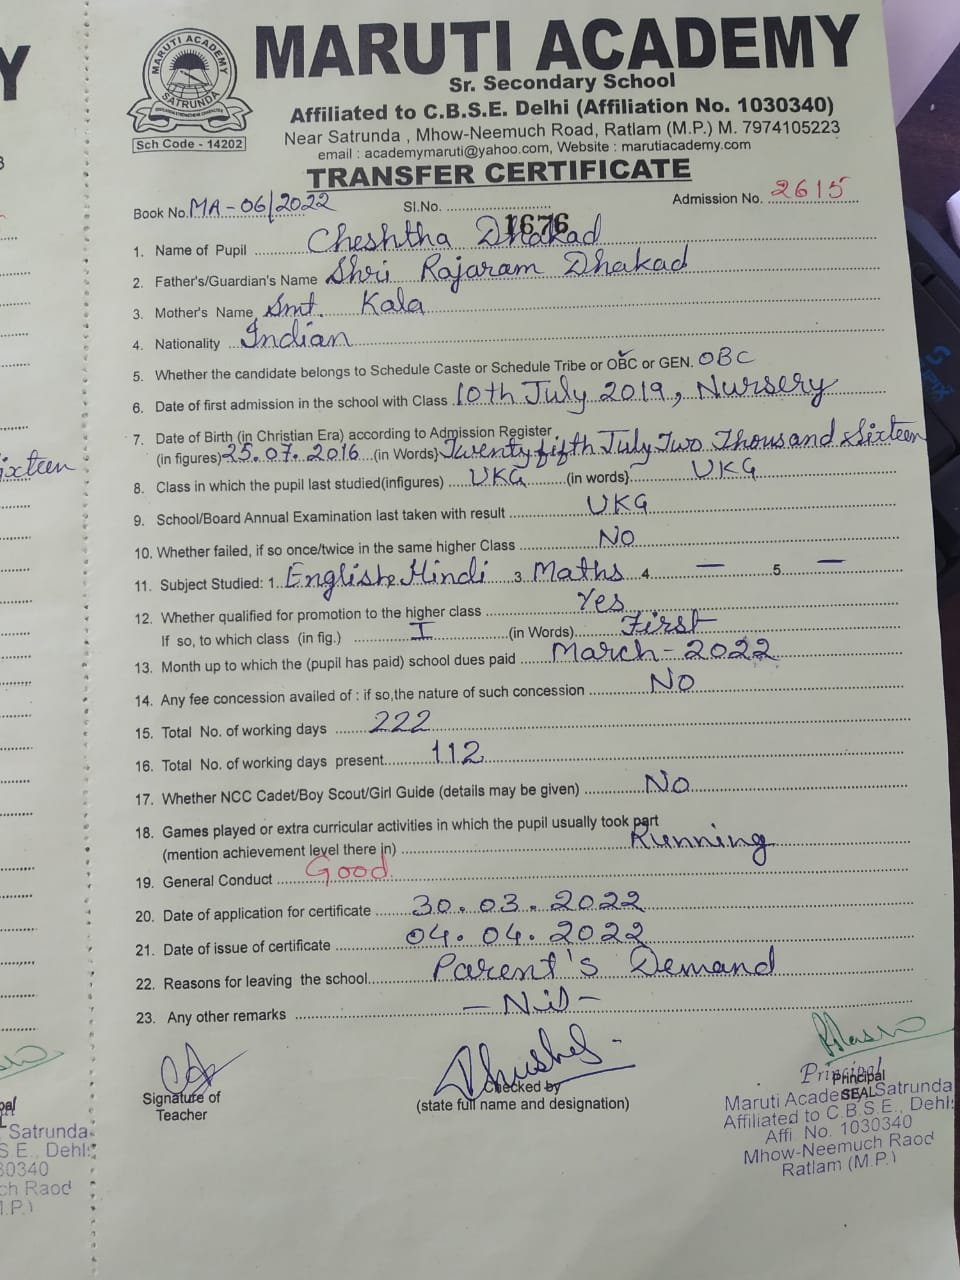 MARUTI ACADEMY
Sr. Secondary School
Affiliated to C.B.S.E. Delhi (Affiliation No. 1030340)
Near Satrunda , Mhow-Neemuch Road, Ratlam (M.P.) M. 7974105223
email : academymaruti@yahoo.com, Website : marutiacademy.com
MARUTI ACADEMY
SATRUNDA
Sch Code - 14202
TRANSFER CERTIFICATE
Book No. MA-06/2022 Sl.No. 1676 Admission No. 2615
1. Name of Pupil Cheshtha Dhakad
2. Father's/Guardian's Name Shri Rajaram Dhakad
3. Mother's Name Smt. Kala
4. Nationality Indian
5. Whether the candidate belongs to Schedule Caste or Schedule Tribe or OBC or GEN. OBC
6. Date of first admission in the school with Class 10th July 2019, Nursery
7. Date of Birth (in Christian Era) according to Admission Register
(in figures) 25.07.2016 (in Words) Twenty fifth July Two Thousand Sixteen
8. Class in which the pupil last studied(infigures) UKG (in words} UKG
9. School/Board Annual Examination last taken with result UKG
10. Whether failed, if so once/twice in the same higher Class No
11. Subject Studied: 1. English 2. Hindi 3. Maths 4. — 5. —
12. Whether qualified for promotion to the higher class Yes
If so, to which class (in fig.) I (in Words) First
13. Month up to which the (pupil has paid) school dues paid March-2022
14. Any fee concession availed of : if so,the nature of such concession No
15. Total No. of working days 222
16. Total No. of working days present 112
17. Whether NCC Cadet/Boy Scout/Girl Guide (details may be given) No
18. Games played or extra curricular activities in which the pupil usually took part
(mention achievement level there in) Running
19. General Conduct Good
20. Date of application for certificate 30.03.2022
21. Date of issue of certificate 04.04.2022
22. Reasons for leaving the school Parent's Demand
23. Any other remarks -Nil-
Signature of
Teacher
Checked by
(state full name and designation)
Principal
SEAL
Principal
Maruti Academy Satrunda
Affiliated to C.B.S.E., Dehli
Affi. No. 1030340
Mhow-Neemuch Raod
Ratlam (M.P.)
Y
ixteen
Satrunda
S E., Dehl:
30340
ch Raod